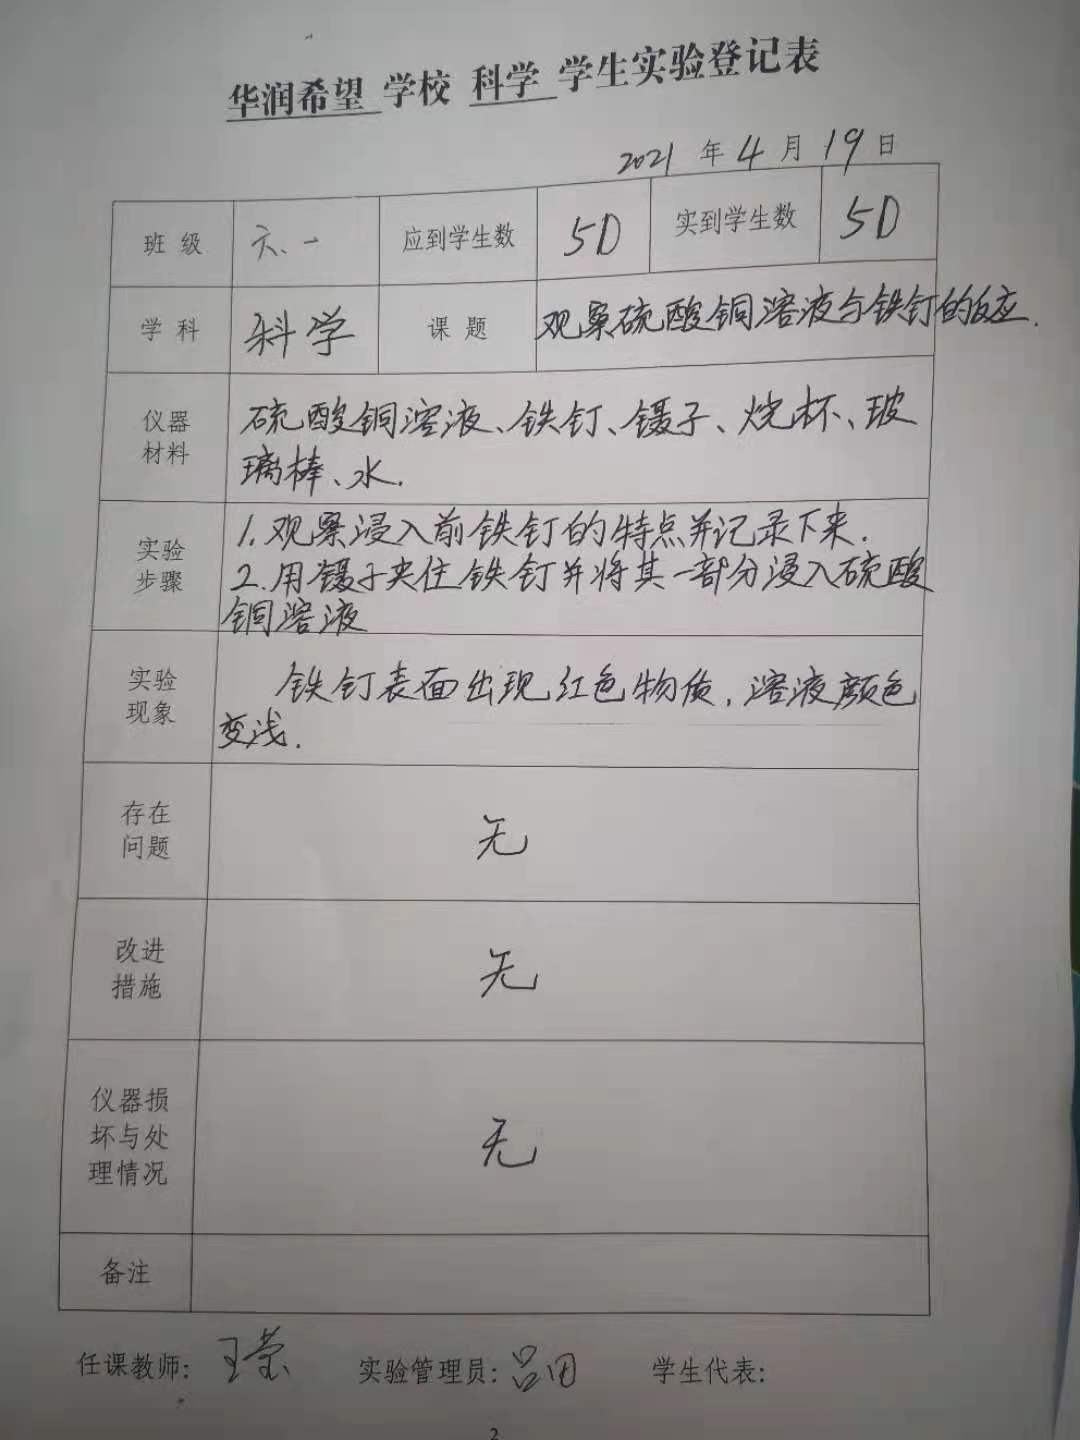 华润希望 学校 科学 学生实验登记表
2021 年 4 月 19 日
班 级 六.一 应到学生数 50 实到学生数 50
学 科 科学 课 题 观察硫酸铜溶液与铁钉的反应.
仪器
材料
硫酸铜溶液、铁钉、镊子、烧杯、玻
璃棒、水.
实验
步骤
1.观察浸入前铁钉的特点并记录下来.
2.用镊子夹住铁钉并将其一部分浸入硫酸
铜溶液
实验
现象
铁钉表面出现红色物质,溶液颜色
变浅.
存在
问题
无
改进
措施
无
仪器损
坏与处
理情况
无
备注
任课教师: 王莹 实验管理员: 吕田 学生代表:
2